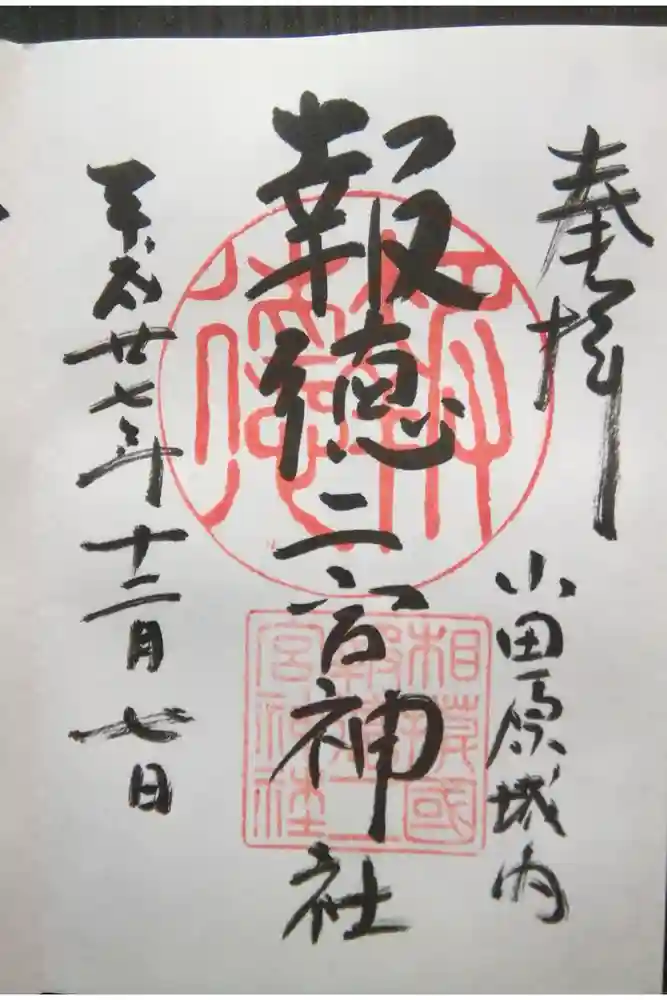 奉拝
小田原城内
報徳二宮神社
相模國
報徳二
宮神社
報徳
平成廿七年十二月七日